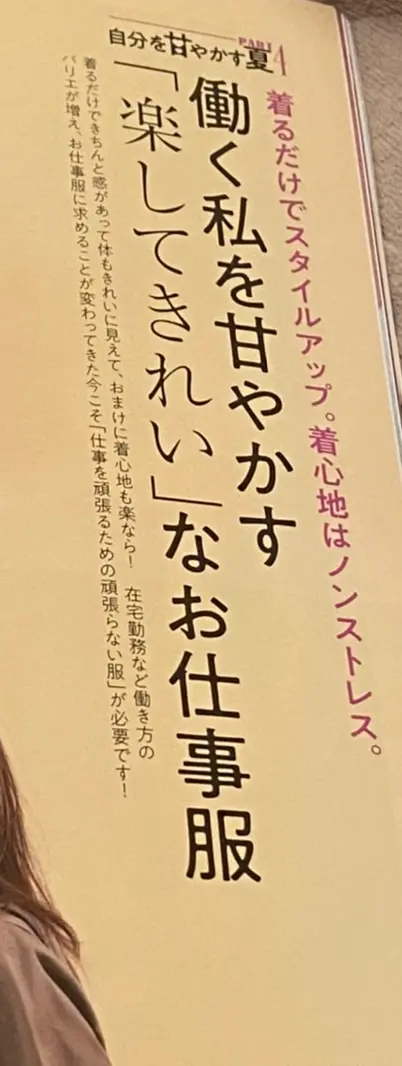 自分を甘やかす夏 PART 4
着るだけでスタイルアップ。着心地はノンストレス。
働く私を甘やかす
「楽してきれい」なお仕事服
着るだけできちんと感があって体もきれいに見えて、おまけに着心地も楽なら! 在宅勤務など働き方の
バリエが増え、お仕事服に求めることが変わってきた今こそ「仕事を頑張るための頑張らない服」が必要です!